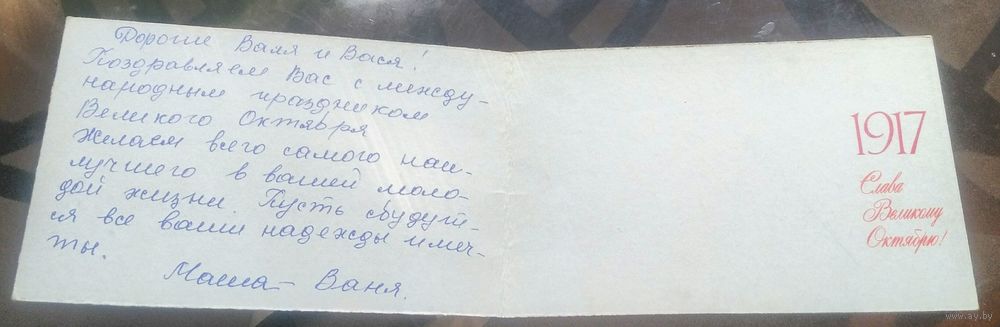 Дорогие Валя и Вася!
Поздравляем Вас с между-
народным праздником
Великого Октября
Желаем всего самого наи-
лучшего в вашей моло-
дой жизни. Пусть сбудут-
ся все ваши надежды и меч-
ты.
Маша – Ваня.
1917
Слава
Великому
Октябрю!
www.ay.by